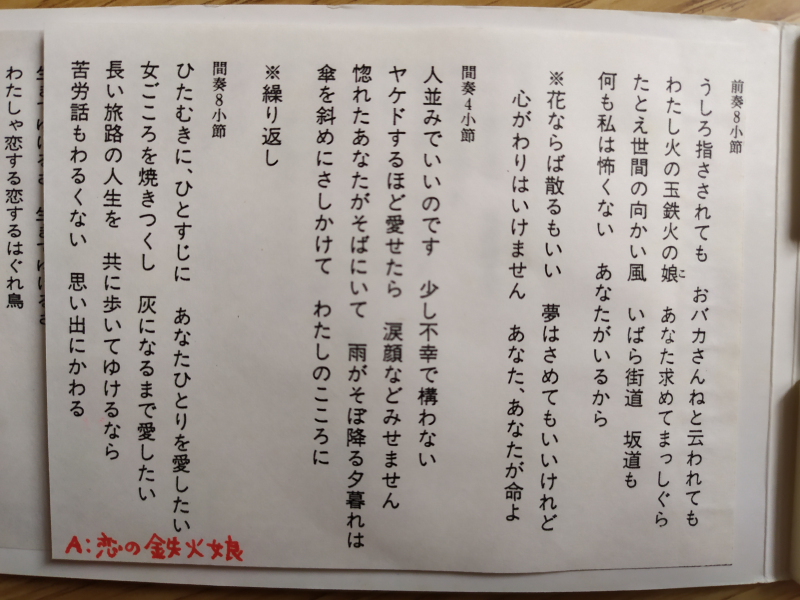 前奏8小節
うしろ指さされても　おバカさんねと云われても
わたし火の玉鉄火の娘　あなた求めてまっしぐら
こ
たとえ世間の向かい風　いばら街道　坂道も
何も私は怖くない　あなたがいるから
※花ならば散るもいい　夢はさめてもいいけれど
心がわりはいけません　あなた、あなたが命よ
間奏4小節
人並みでいいのです　少し不幸で構わない
ヤケドするほど愛せたら　涙顔などみせません
惚れたあなたがそばにいて　雨がそぼ降る夕暮れは
傘を斜めにさしかけて　わたしのこころに
※繰り返し
間奏8小節
ひたむきに、ひとすじに　あなたひとりを愛したい
女ごころを焼きつくし　灰になるまで愛したい
長い旅路の人生を　共に歩いてゆけるなら
苦労話もわるくない　思い出にかわる
わたしゃ恋する恋するはぐれ鳥
A:恋の鉄火娘